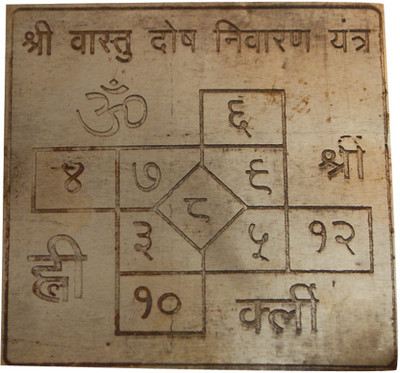 श्री वास्तु दोष निवारण यंत्र
ॐ
६
४ ७ ९ श्री
८
ह्रीं ३ ५ १२
१० क्लीं